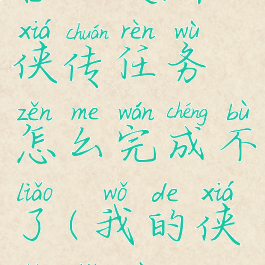 xiá chuán rèn wù
侠传任务
zěn me wán chéng bù
怎么完成不
liǎo wǒ de xiá
了(我的侠